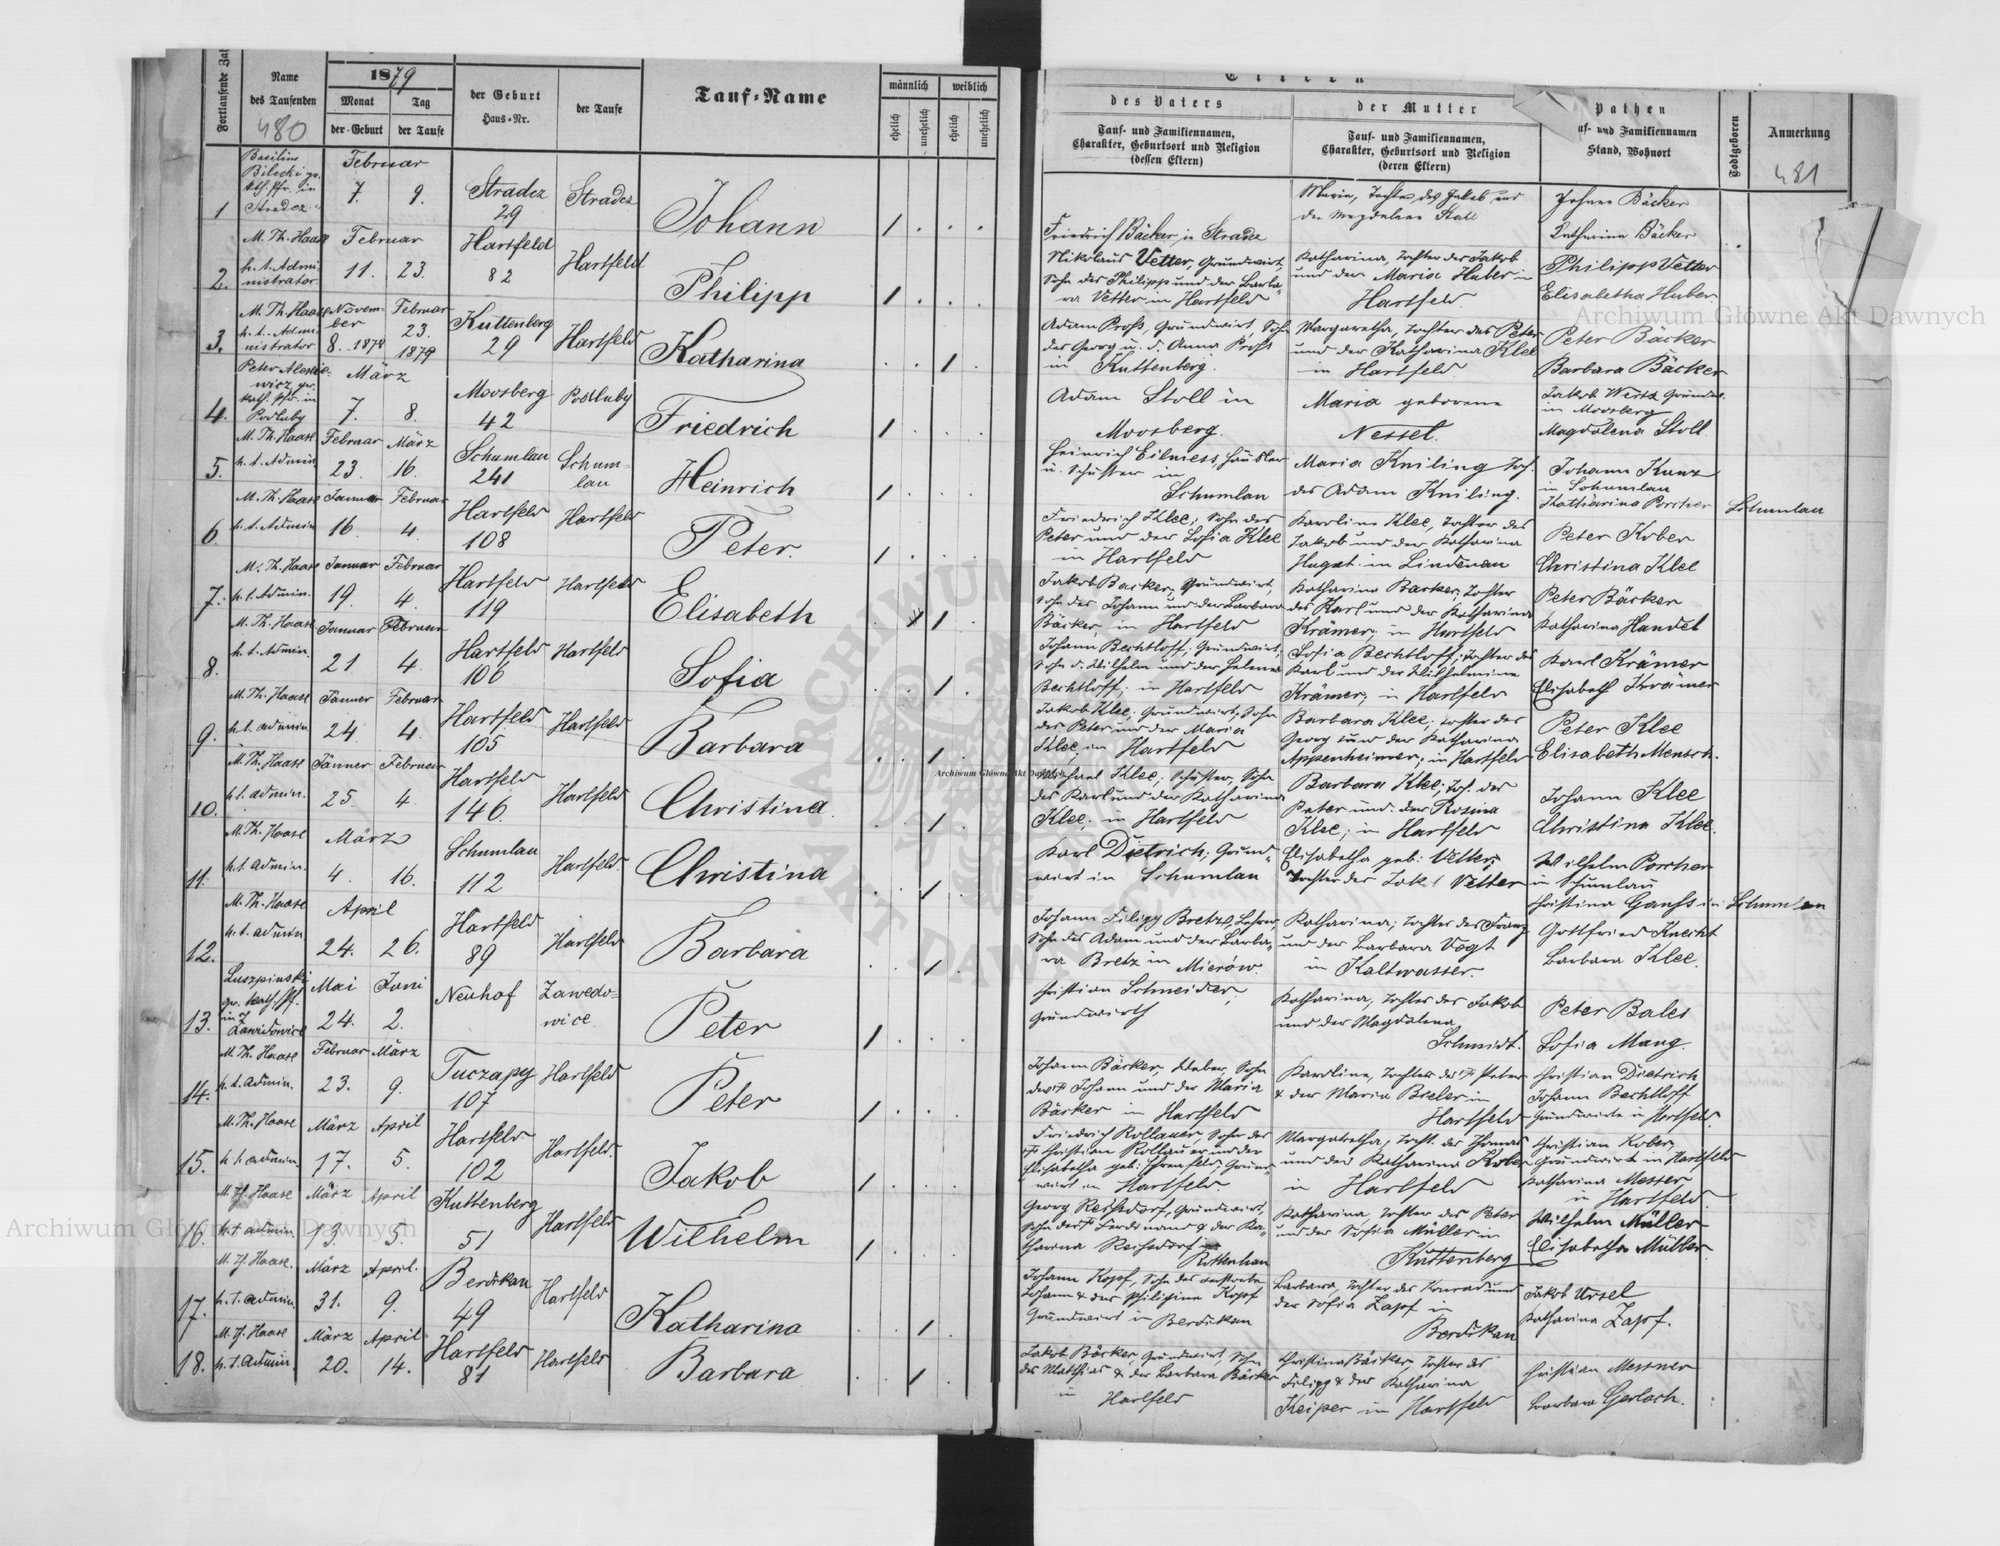 Fortlaufende Zahl
Name
des Taufenden
480
1879
Monat
Tag
der Geburt
der Taufe
der Geburt
Haus-Nr.
der Taufe
Tauf-Name
männlich
weiblich
ehelich
unehelich
ehelich
unehelich
Eltern
des Vaters
Tauf- und Familiennamen,
Charakter, Geburtsort und Religion
(dessen Eltern)
der Mutter
Tauf- und Familiennamen,
Charakter, Geburtsort und Religion
(deren Eltern)
Pathen
uf- und Familiennamen
Stand, Wohnort
Todtgeboren
Anmerkung
481
1
Basilius
Bilecki gr.
kth. Pfr. in
Stradcz
Februar
7. 9.
Stradcz
29
Stradcz
Johann
Friedrich Bäcker in Stradcz
Maria, Tochter des Jakob und
der Magdalena Stall
Johann Bäcker
Katharina Bäcker
2.
M. Th. Haase
h. t. Admi-
nistrator
Februar
11. 23.
Hartfeld
82
Hartfeld
Philipp
Nikolaus Vetter, Grundwirt,
Sohn des Philipp und der Barba-
ra Vetter in Hartfeld
Katharina, Tochter des Jakob
und der Maria Huber in
Hartfeld
Philipp Vetter
Elisabetha Huber
3.
M. Th. Haase
h. t. Admi-
nistrator
Novem-
ber
8. 1878
Februar
23.
1879
Kuttenberg
29
Hartfeld
Katharina
Adam Proß, Grundwirt, Sohn
des Georg u. d. Anna Proß
in Kuttenberg.
Margaretha, Tochter des Peter
und der Katharina Klee
in Hartfeld
Peter Bäcker
Barbara Bäcker
4.
Peter Alexie-
wicz gr.
kath. Pfr. in
Podluby
März
7. 8.
Moosberg
42
Podluby
Friedrich
Adam Stoll in
Moosberg.
Maria geborene
Nessel.
Jakob Wirth Grundw.
in Moosberg
Magdalena Stoll
5.
M. Th. Haase
h. t. Admin.
Februar
23.
März
16.
Schumlau
241
Schum-
lau
Heinrich
Heinrich Eilmess, Häusler
u. Schuster in
Schumlau
Maria Kniling Toch.
des Adam Kniling.
Johann Kunz
in Schumlau
Katharina Porcher
Schumlau
6.
M. Th. Haase
h. t. Admin.
Januar
16.
Februar
4.
Hartfeld
108
Hartfeld
Peter.
Friedrich Klee; Sohn des
Peter und der Sofia Klee
in Hartfeld
Karoline Klee, Tochter des
Jakob und der Katharina
in Lindenau
Peter Kober
Christina Klee
7.
M. Th. Haase
h. t. Admin.
Januar
19.
Februar
4.
Hartfeld
119
Hartfeld
Elisabeth
Jakob Bäcker, Grundwirt,
Sohn des Johann und der Barbara
Bäcker, in Hartfeld
Katharina Bäcker, Tochter
des Karl und der Katharina
Krämer; in Hartfeld
Peter Bäcker
Katharina Handel
8.
M. Th. Haase
h. t. Admin.
Januar
21
Februar
4.
Hartfeld
106
Hartfeld
Sofia
Johann Bechtloff; Grundwirt,
Sohn d. Wilhelm und der Helena
Bechtloff; in Hartfeld
Sofia Bechtloff; Tochter des
Karl und der Wilhelmine
Krämer; in Hartfeld
Karl Krämer
Elisabeth Krämer
9.
M. Th. Haase
h. t. Admin.
Jänner
24
Februar
4.
Hartfeld
105
Hartfeld
Barbara
Jakob Klee; Grundwirt, Sohn
des Peter und der Maria
Klee, in Hartfeld
Barbara Klee; Tochter des
Georg und der Katharina
Appenheimer; in Hartfeld
Peter Klee
Elisabeth Mensch.
10.
M. Th. Haase
h. t. Admin.
Jänner
25.
Februar
4.
Hartfeld
146
Hartfeld
Christina.
Michael Klee; Schuster, Sohn
des Karl und der Katharina
Klee; in Hartfeld
Barbara Klee; Toch. des
Peter und der Rosina
Klee; in Hartfeld
Johann Klee
Christina Klee.
11.
M. Th. Haase
h. t. Admin.
März
4. 16.
Schumlau
112
Hartfeld.
Christina
Karl Dietrich; Grund-
wirt in Schumlau
Elisabetha geb: Vetter;
Tochter des Jakob Vetter
Wilhelm Porcher
in Schumlau
Christina Ganß in Schumlau
12.
M. Th. Haase
h. t. Admin.
April
24. 26.
Hartfeld
89
Hartfeld
Barbara
Johann Filipp Bretz, Lehrer,
Sohn des Adam und der Barba-
ra Bretz in Mierów.
Katharina; Tochter des Franz
und der Barbara Vogt
in Kaltwasser.
Gottfried Knecht
Barbara Klee.
13.
Luszpinski
gr. kath. Pfr.
in
Zawidowice
Mai
24.
Juni
2.
Neuhof
Zawedo-
wice
Peter
Christian Schneider,
Grundwirth
Katharina, Tochter des Jakob
und der Magdalena
Schmidt.
Peter Bales
Sofia Mang.
14.
M. Th. Haase
h. t. Admin.
Februar
23.
März
9.
Tuczapy
107
Hartfeld
Peter
Johann Bäcker, Weber, Sohn
des † Johann und der Maria
Bäcker in Hartfeld
Karoline, Tochter des † Peter
& der Maria Breler in
Hartfeld
Christian Dietrich
Johann Bechtloff
Grundwirte in Hartfeld.
15.
M. Th. Haase
h. t. Admin.
März
17.
April
5.
Hartfeld
102
Hartfeld.
Jakob
Friedrich Rollauer, Sohn des
† Christian Rollauer und der
Elisabetha geb: Ehrenfeld, Grund-
wirt in Hartfeld.
Margaretha, Tocht. des Thomas
und der Katharina Kober
in Hartfeld
Christian Kober,
Grundwirt in Hartfeld
Katharina Messer
in Hartfeld.
16.
M. Th. Haase
h. t. Admin.
März
13.
April
5.
Kuttenberg
51
Hartfeld
Wilhelm
Georg Reihsdorf, Grundwirt,
Sohn des † Ferdinand & der Ka-
tharina Reihsdorf in
Rottenhan
Katharina, Tochter des Peter
und der Sofia Müller in
Kuttenberg
Wilhelm Müller
Elisabetha Müller
17.
M. Th. Haase.
h. t. Admin.
März
31.
April.
9.
Berdikau
49
Hartfeld
Katharina
Johann Kopf, Sohn des verstorb.
Johann & der Philipina Kopf
Grundwirt in Berdikau
Barbara, Tochter des Konrad und
der Sofia Zapf in
Berdikau
Jakob Ursel
Katharina Zapf.
18.
M. Th. Haase
h. t. Admin.
März
20.
April
14.
Hartfeld
81
Hartfeld
Barbara
Jakob Bäcker, Grundwirt, Sohn
des Matthias & der Barbara Bäcker
in Hartfeld
Christina Bäcker, Tochter des
Filipp & der Katharina
Keiper in Hartfeld
Christian Messner
Barbara Gerlach.
Archiwum Główne Akt Dawnych
Archiwum Główne Akt Dawnych
Archiwum Główne Akt Dawnych